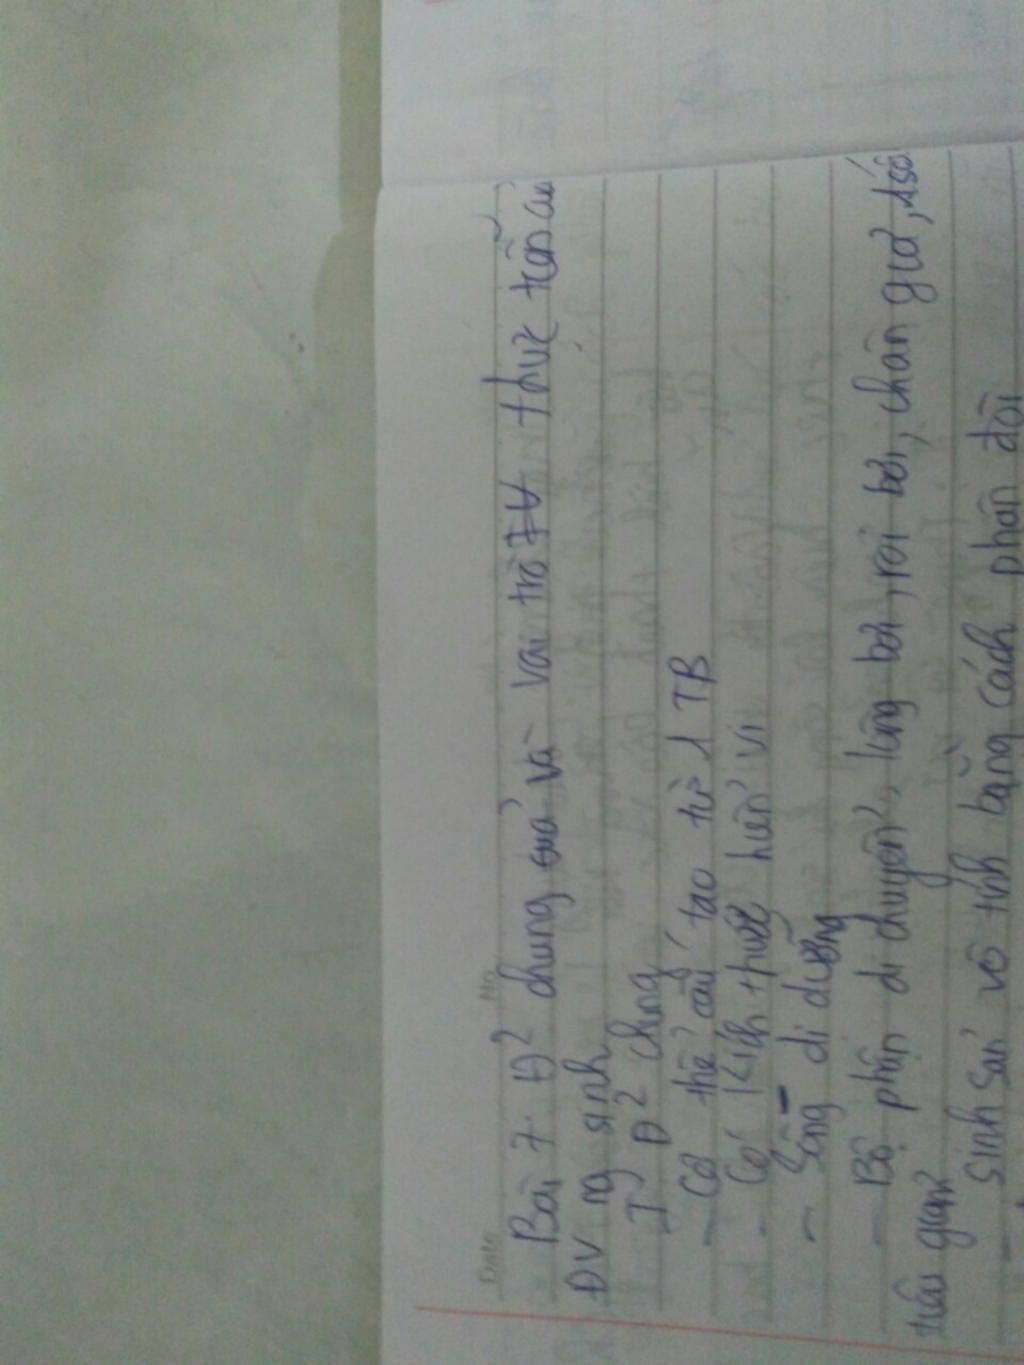 Date No
Bài 7. Đ² chung quả và vai trò thực tiễn củ
ĐV ng sinh
I) Đ² chung
- Cơ thể cấu tạo từ 1 TB
- Có Kích thước hiển vi
- Sống dị dưỡng
- Bộ phận di chuyển, lông bơi, roi bơi, chân giả, 1 số
tiêu giảm
- Sinh sản vô tính bằng cách phân đôi